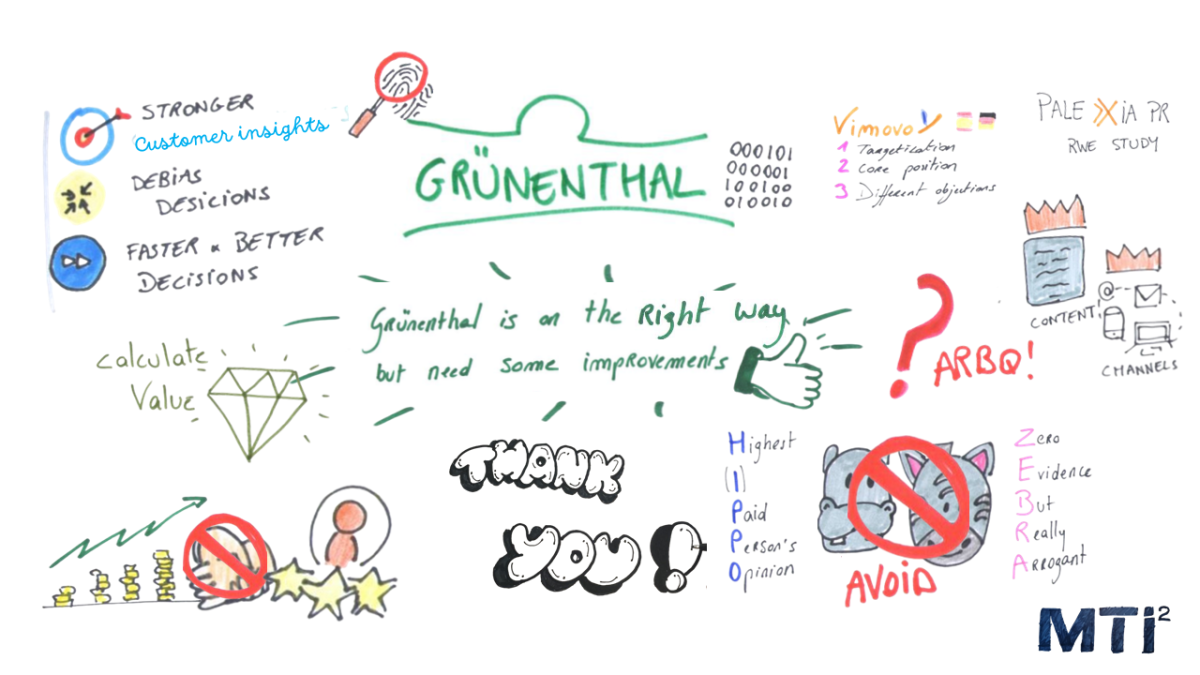 STRONGER
Customer insights
DEBIAS
DESICIONS
FASTER & BETTER
DECISIONS
GRÜNENTHAL
000101
000001
100100
010010
Vimovo
1 Targetication
2 Core position
3 Different objections
PALEXIA PR
RWE STUDY
CONTENT
@
CHANNELS
Grünenthal is on the Right way
but need some improvements
Calculate
Value
? ARBQ!
THANK
YOU!
Highest
(I)
Paid
Person's
Opinion
AVOID
Zero
Evidence
But
Really
Arrogant
MTi²